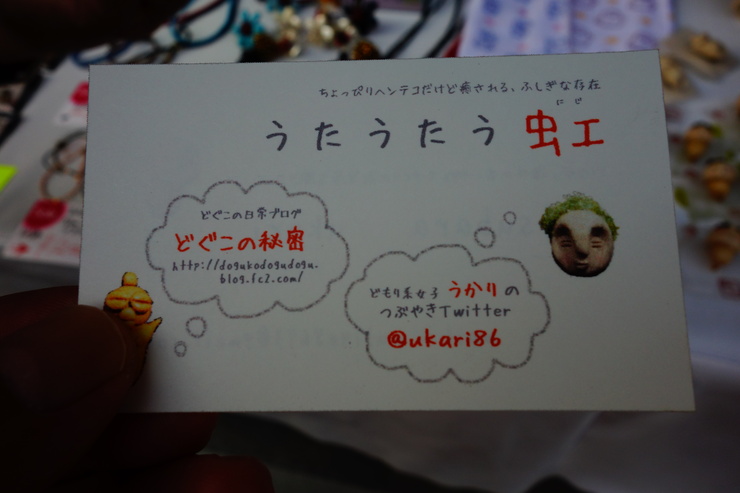 ちょっぴりヘンテコだけど癒される、ふしぎな存在
にじ
うたうたう虹
どぐこの日常ブログ
どぐこの秘密
http://dogukodogudogu.
blog.fc2.com/
どもり系女子 うかりの
つぶやきTwitter
@ukari86